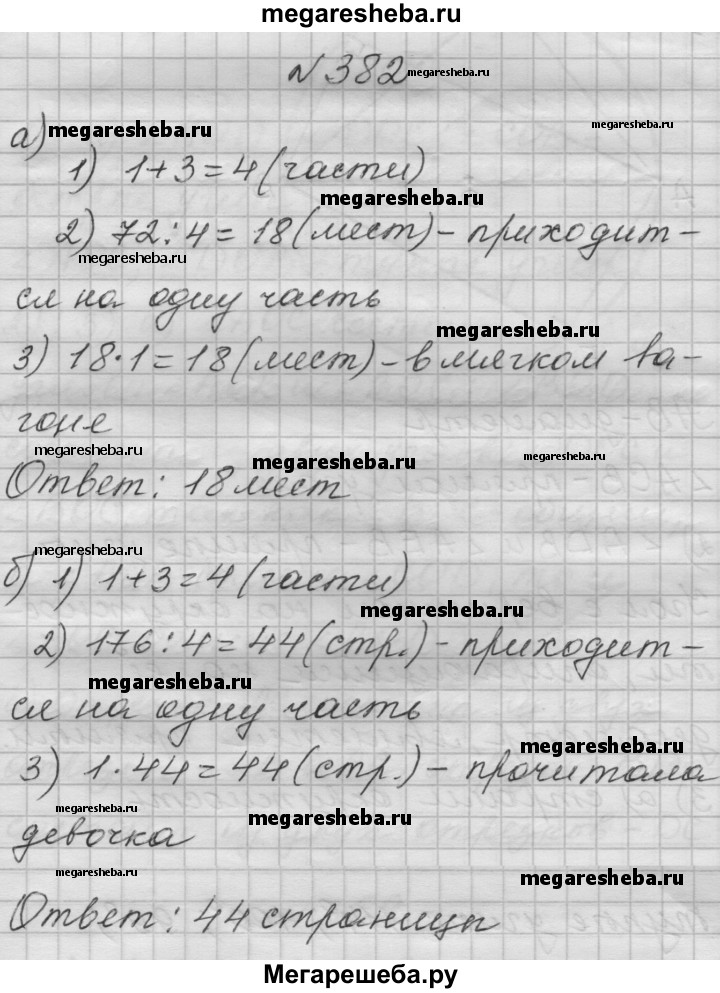 megaresheba.ru
№382 megaresheba.ru
а) megaresheba.ru megaresheba.ru
1) 1+3=4 (части)
megaresheba.ru
2) 72:4=18(мест)-приходит-
megaresheba.ru
ся на одну часть
megaresheba.ru
3) 18·1=18(мест)-в мягком ва-
гоне
megaresheba.ru megaresheba.ru megaresheba.ru
Ответ: 18 мест
megaresheba.ru
б) 1) 1+3=4 (части)
megaresheba.ru
2) 176:4=44(стр.)-приходит-
megaresheba.ru
ся на одну часть
megaresheba.ru
3) 1·44=44(стр.)-прочитала
megaresheba.ru megaresheba.ru
девочка
megaresheba.ru megaresheba.ru
Ответ: 44 страницы
Мегарешеба.ру